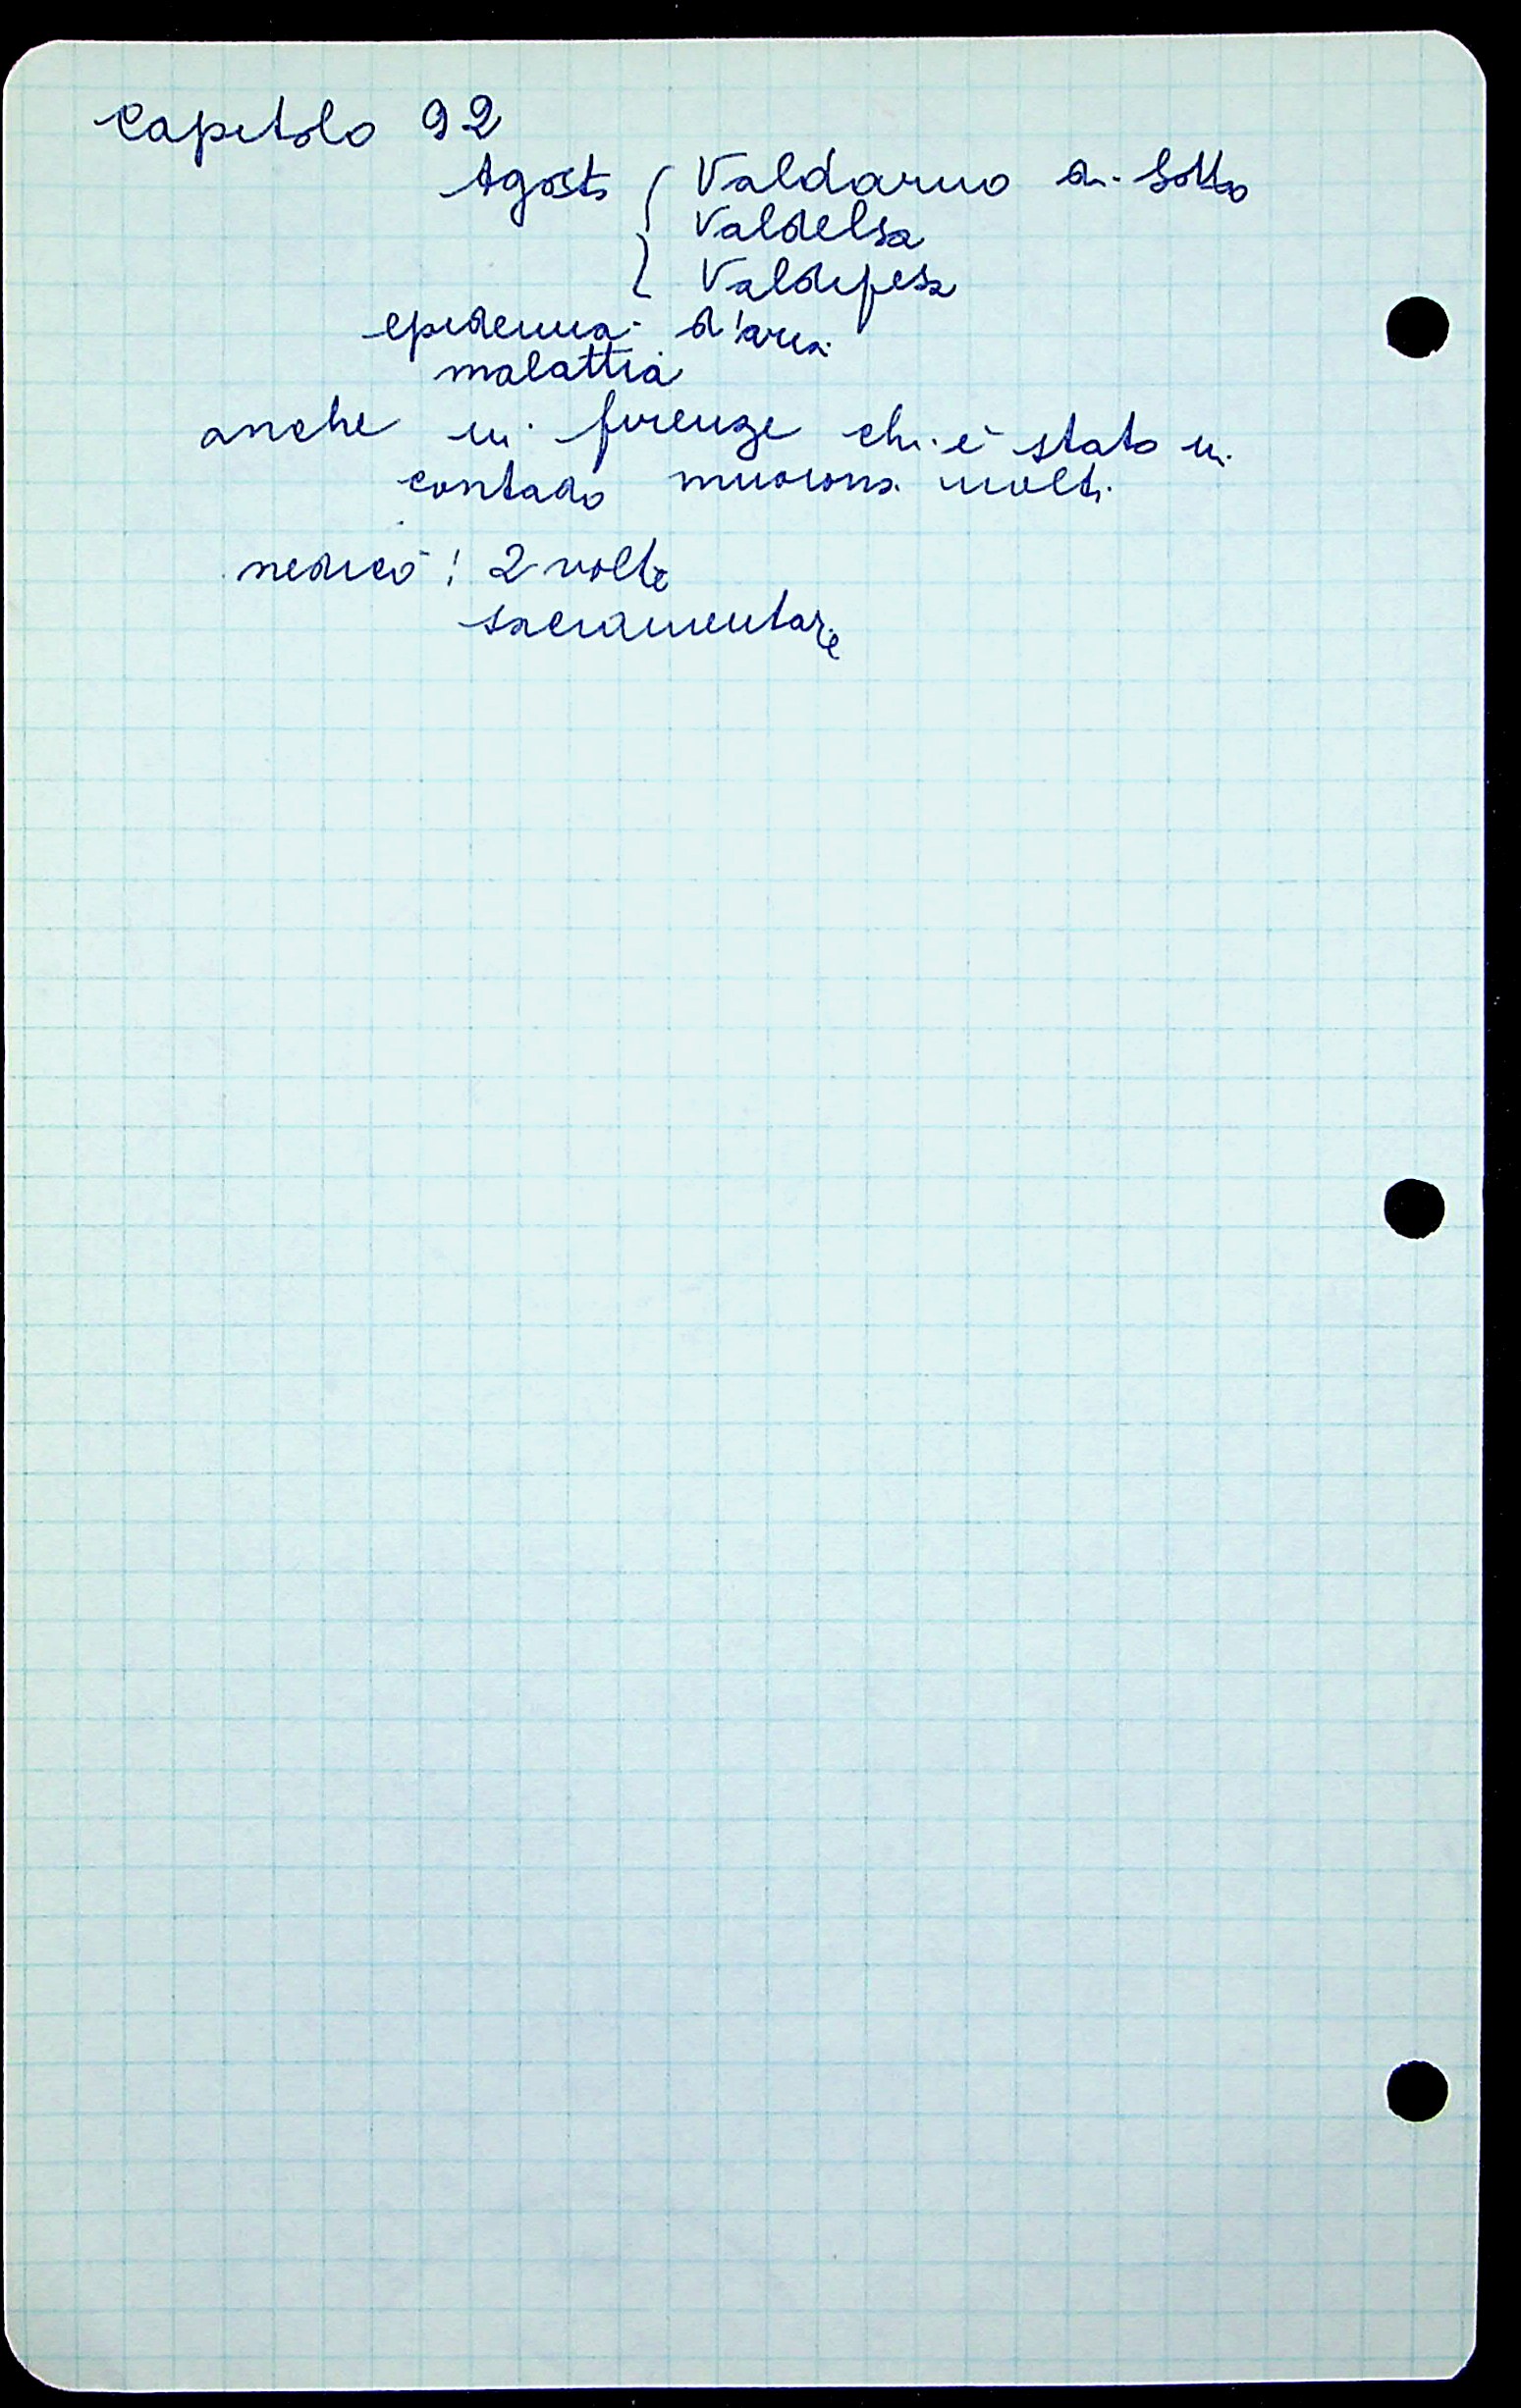 Capitolo 92
Agosto { Valdarno di Sotto
Valdelsa
Valdipesa
epidemia d'aria
malattia
anche in firenze chi è stato in
contado muoiono molti
: 2 volte
sacramentare